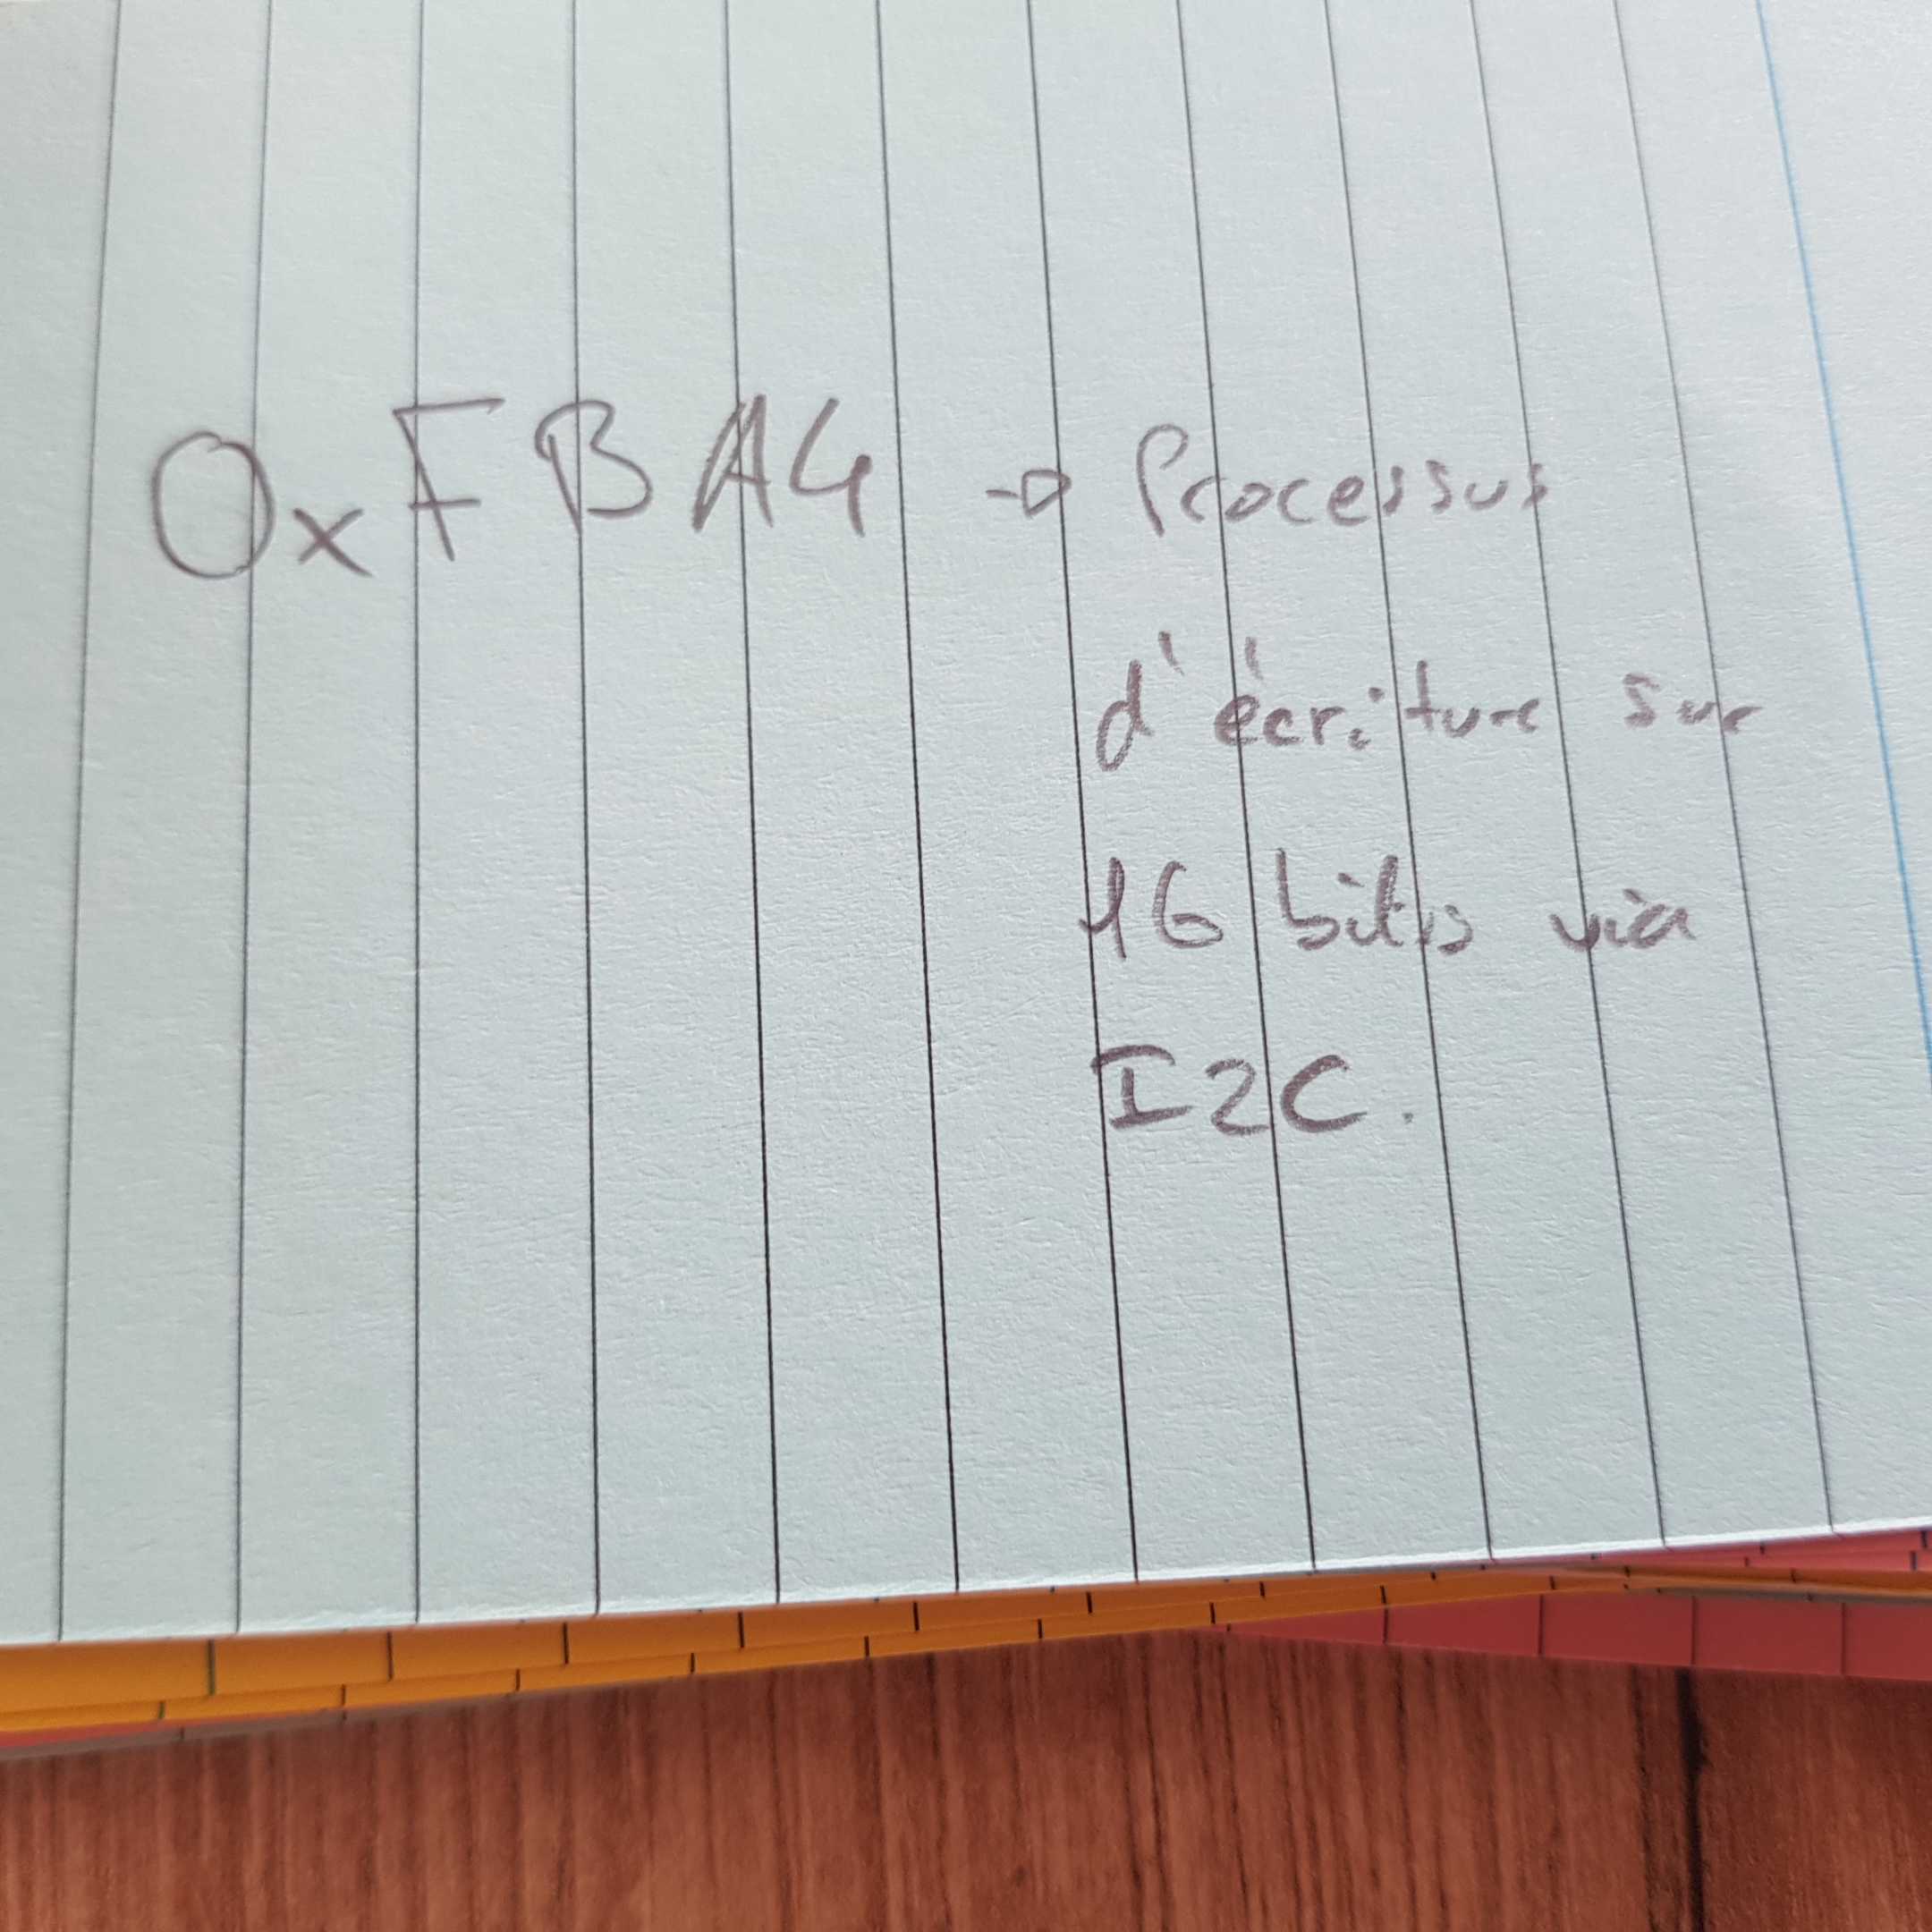 0xFBA4 → Processus
d'écriture sur
16 bits via
I2C.